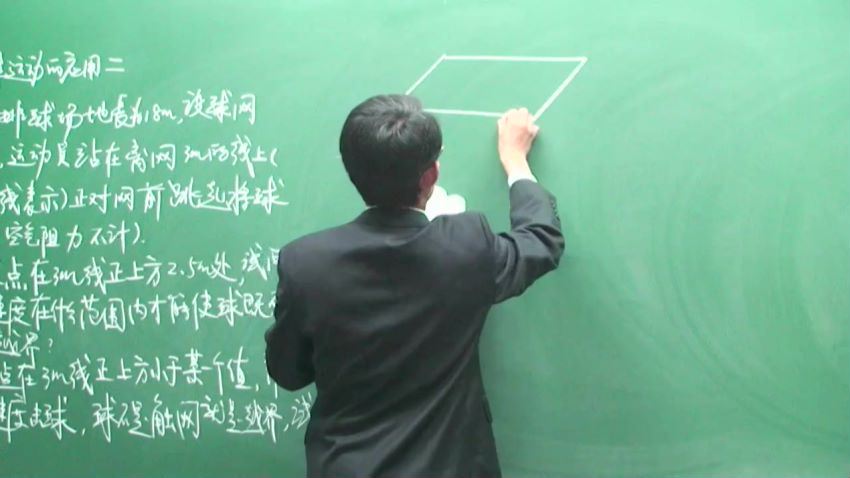 运动的应用二
排球场地长为18m,设球网
,运动员站在离网3m的线上(
线表示)正对网前跳起将球
空气阻力不计).
点在3m线正上方2.5m处,试问
速度在什么范围内才能使球既
越界?
点在3m线正上方小于某个值,
速度击球,球不是触网就是越界,试